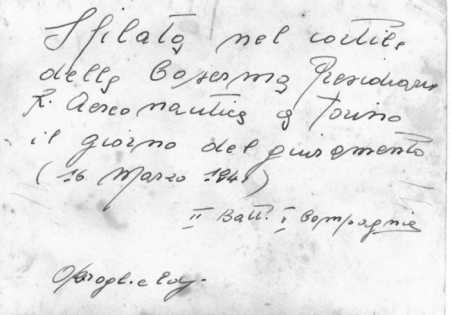 Sfilata nel cortile
della Caserma Presidiaria
R. Aeronautica a Torino
il giorno del giuramento
(16 Marzo 194 )
II Batt. I Compagnia